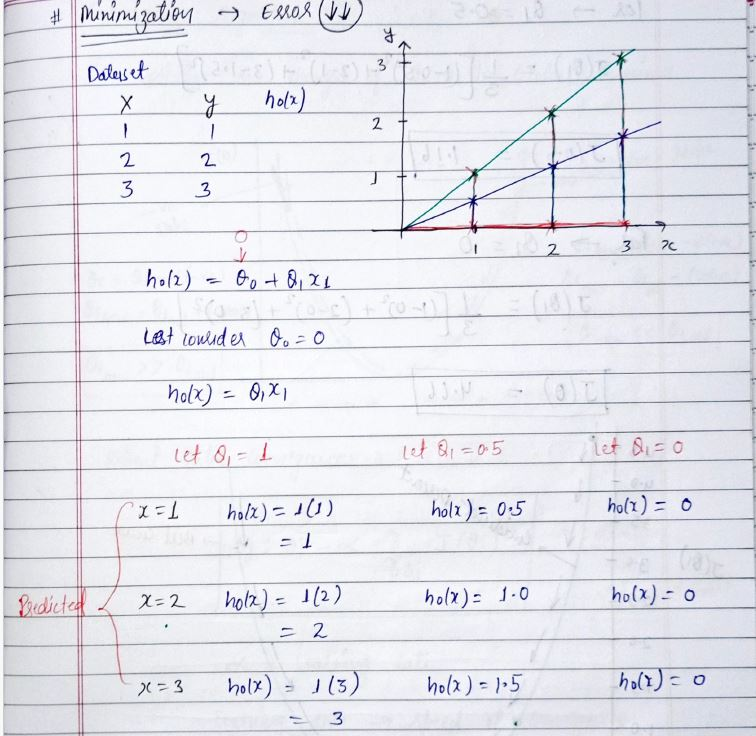 # Minimization → Error (↓↓)
Dataset
X Y ho(x)
1 1
2 2
3 3
y
3
2
1
1 2 3 x
0
↓
ho(x) = θ₀ + θ₁x₁
Let consider θ₀ = 0
ho(x) = θ₁x₁
Let θ₁ = 1 Let θ₁ = 0.5 Let θ₁ = 0
Predicted
x = 1 ho(x) = 1(1) ho(x) = 0.5 ho(x) = 0
= 1
x = 2 ho(x) = 1(2) ho(x) = 1.0 ho(x) = 0
= 2
x = 3 ho(x) = 1(3) ho(x) = 1.5 ho(x) = 0
= 3